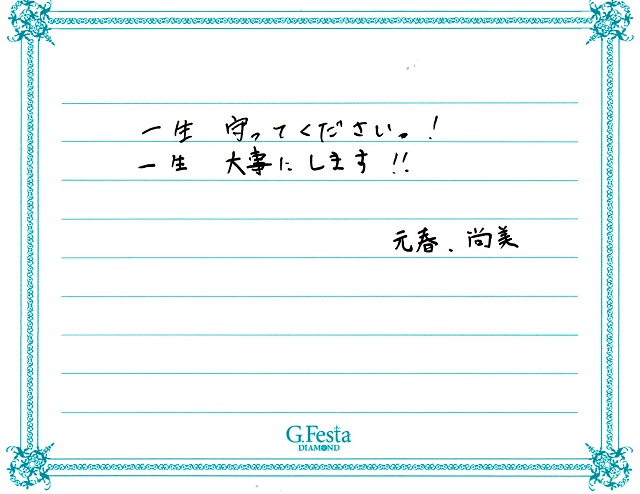 一生 守ってください。!
一生 大事にします!!
元春、尚美
G.Festa
DIAMOND